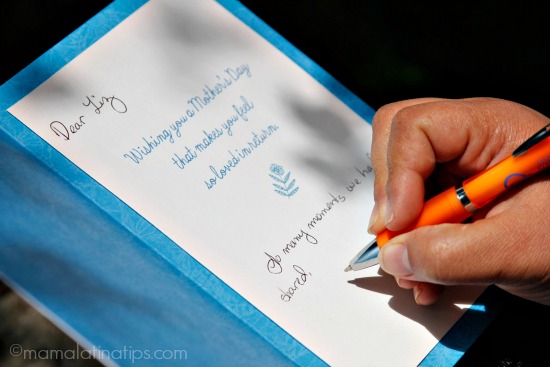 Dear Liz
Wishing you a Mother's Day
that makes you feel
so loved in return.
So many moments we ha
shared,
©mamalatinatips.com